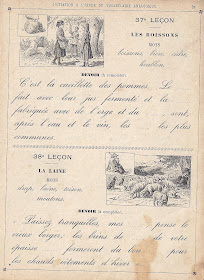 INITIATION A L'ETUDE DU VOCABULAIRE
37e LEÇON
LES BOISSONS
MOTS
boissons, bière, cidre,
houblon.
DEVOIR (à compléter).
C'est la cueillette des pommes. Le
fait avec leur jus fermenté et la
fabriquée avec de l'orge et du sont,
après l'eau et le vin, les les plus
communes.
38e LEÇON
LA LAINE
MOTS
drap, laine, toison,
moutons.
DEVOIR (à compléter).
Paissez tranquilles, mes pense le
vieux berger, les brins de de votre
épaisse forment du bon pour
les chauds vêtements d'hiver